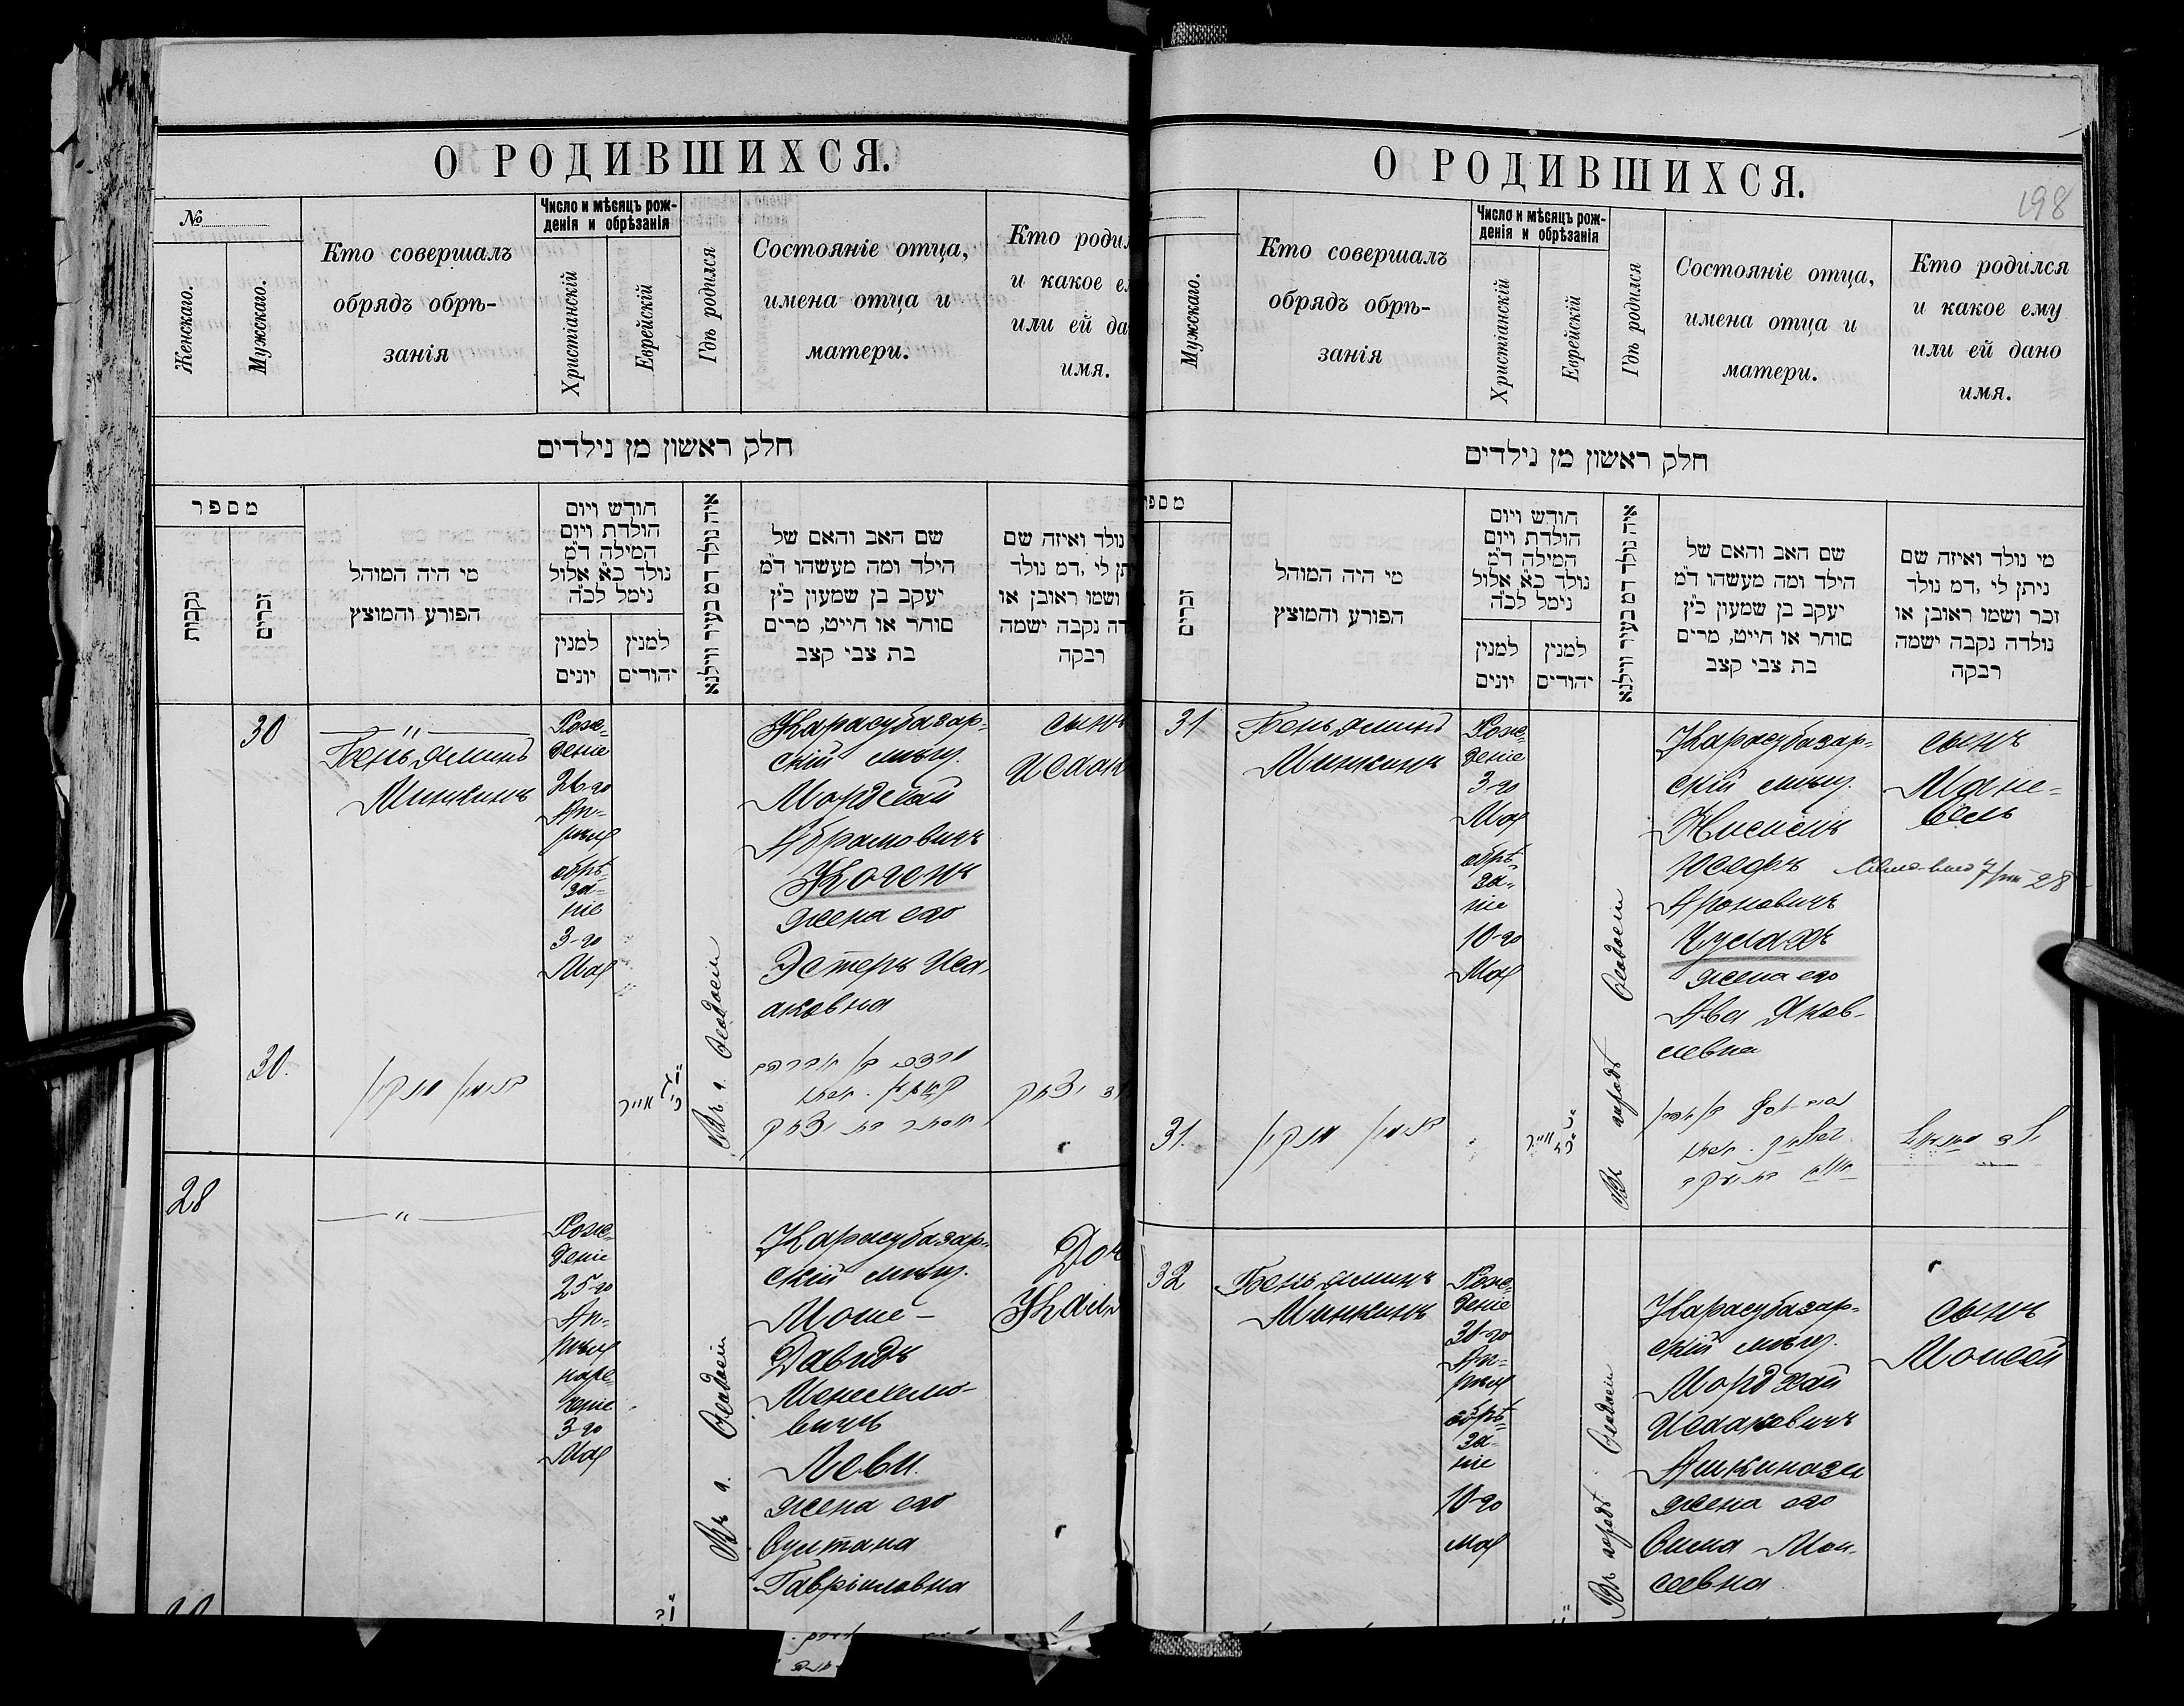 О РОДИВШИХСЯ.
№
Женскаго.
Мужскаго.
Кто совершалъ
обрядъ обрѣ-
занія
Число и мѣсяцъ рож-
денія и обрѣзанія
Христіанскій
Еврейскій
Гдѣ родился
Состояніе отца,
имена отца и
матери.
Кто родил
и какое е
или ей да
имя.
חלק ראשון מן נילדים
מספר
נקבות
זכרים
מי היה המוהל
הפורע והמוצץ
חודש ויום
הולדת ויום
המילה ד״מ
נולד כ״א אלול
נימל לכ״ה
למנין
יונים
למנין
יהודים
איה נולד דמ בעיר ווילנא
שם האב והאם של
הילד ומה מעשהו ד״מ
יעקב בן שמעון כ״ץ
סוחר או חייט, מרים
בת צבי קצב
נולד ואיזה שם
תן לי ,דמ נולד
ושמו ראובן או
דה נקבה ישמה
רבקה
30
"
Беньяминъ
Минкинъ
Рож-
деніе
26-го
Ап-
рѣля
обрѣ-
за-
ніе
3-го
Мая
Въ г. Ѳеодосіи
Карасубазар-
скій мѣщ.
Мордехай
Абрамовичъ
Когенъ
жена его
Эстеръ Иса-
аковна
сынъ
Исаакъ
30.
בנימין מינקין
אייר
מרדכי בן אברהם
אסתר בת יצחק
יצחק
28
"
Рож-
деніе
25-го
Ап-
рѣля
наре-
ченіе
3-го
Мая
Въ г. Ѳеодосіи
Карасубазар-
скій мѣщ.
Моше-
Давидъ
Менехемо-
вичъ
Леви.
жена его
Султана
Гавріиловна
Доч
О РОДИВШИХСЯ.
198
Мужскаго.
Кто совершалъ
обрядъ обрѣ-
занія
Число и мѣсяцъ рож-
денія и обрѣзанія
Христіанскій
Еврейскій
Гдѣ родился
Состояніе отца,
имена отца и
матери.
Кто родился
и какое ему
или ей дано
имя.
חלק ראשון מן נילדים
מספר
זכרים
מי היה המוהל
הפורע והמוצץ
חודש ויום
הולדת ויום
המילה ד״מ
נולד כ״א אלול
נימל לכ״ה
למנין
יונים
למנין
יהודים
איה נולד דמ בעיר ווילנא
שם האב והאם של
הילד ומה מעשהו ד״מ
יעקב בן שמעון כ״ץ
סוחר או חייט, מרים
בת צבי קצב
מי נולד ואיזה שם
ניתן לי ,דמ נולד
זכר ושמו ראובן או
נולדה נקבה ישמה
רבקה
31
Беньяминъ
Минкинъ
Рож-
деніе
3-го
Мая
обрѣ-
за-
ніе
10-го
Мая
Въ городѣ Ѳеодосіи
Карасубазар-
скій мѣщ.
Нисимъ
Иосифъ
Ароновичъ
жена его
Ава Яков-
левна
сынъ
31.
בנימין מינקין
אייר
בת יעקב
32
Беньяминъ
Минкинъ
Рож-
деніе
30-го
Ап-
рѣля
обрѣ-
за-
ніе
10-го
Мая
Въ городѣ Ѳеодосіи
Карасубазар-
скій мѣщ.
Мордхай
Исааковичъ
Ашкинази
жена его
Сима Мои-
сеевна
сынъ
Моисей